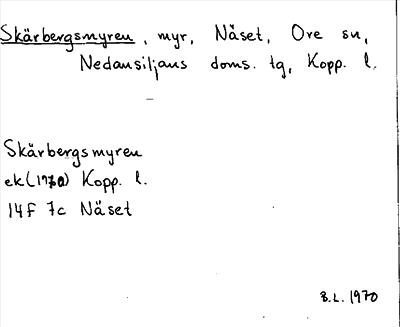 Skärbergsmyren, myr, Näset, Ore sn,
Nedansiljans doms. tg, Kopp. l.
Skärbergsmyren
ek(1970) Kopp. l.
14F 7c Näset
B.L. 1970